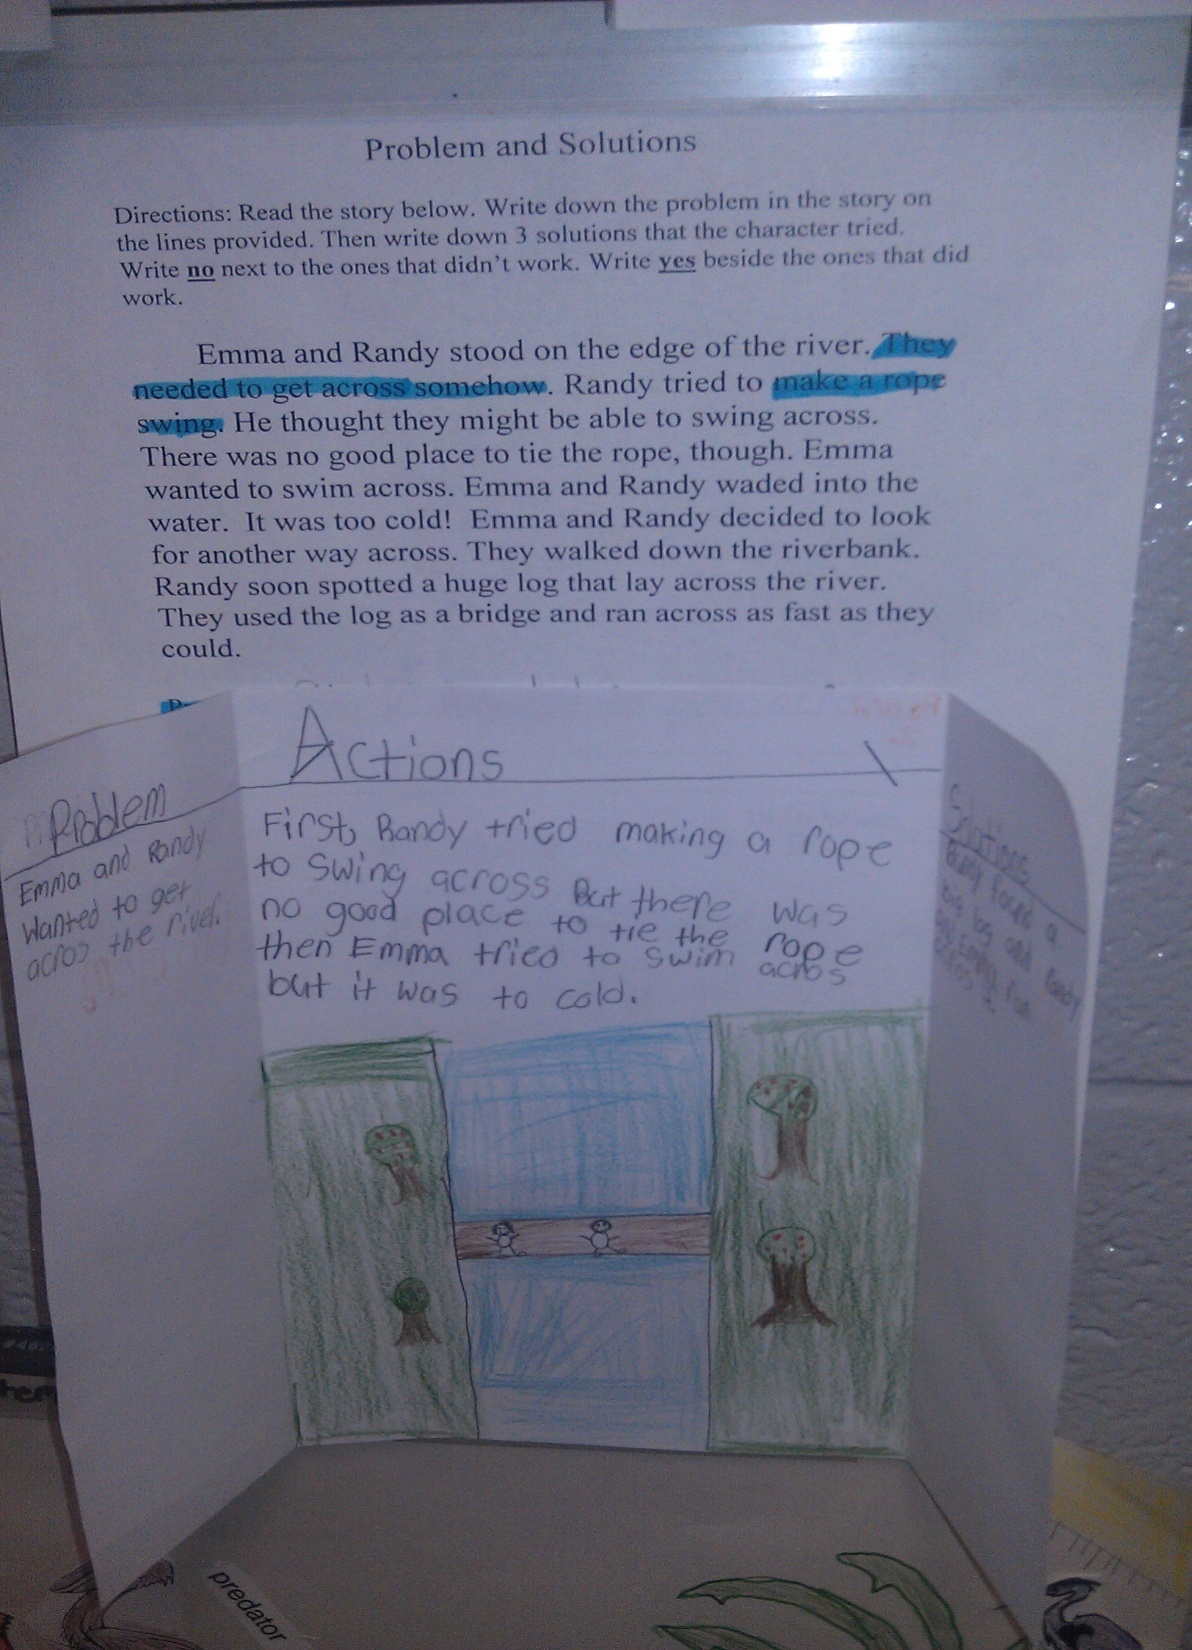 Problem and Solutions
Directions: Read the story below. Write down the problem in the story on
the lines provided. Then write down 3 solutions that the character tried.
Write no next to the ones that didn't work. Write yes beside the ones that did
work.
Emma and Randy stood on the edge of the river. They
needed to get across somehow. Randy tried to make a rope
swing. He thought they might be able to swing across.
There was no good place to tie the rope, though. Emma
wanted to swim across. Emma and Randy waded into the
water. It was too cold! Emma and Randy decided to look
for another way across. They walked down the riverbank.
Randy soon spotted a huge log that lay across the river.
They used the log as a bridge and ran across as fast as they
could.
Problem
Emma and Randy
Wanted to get
acros the river.
Actions
First, Randy tried making a rope
to Swing across But there was
no good place to tie the rope
then Emma tried to Swim acros
but it was to cold.
Solutions
Randy found a
big log and Randy
and Emma ran
acros it
predator